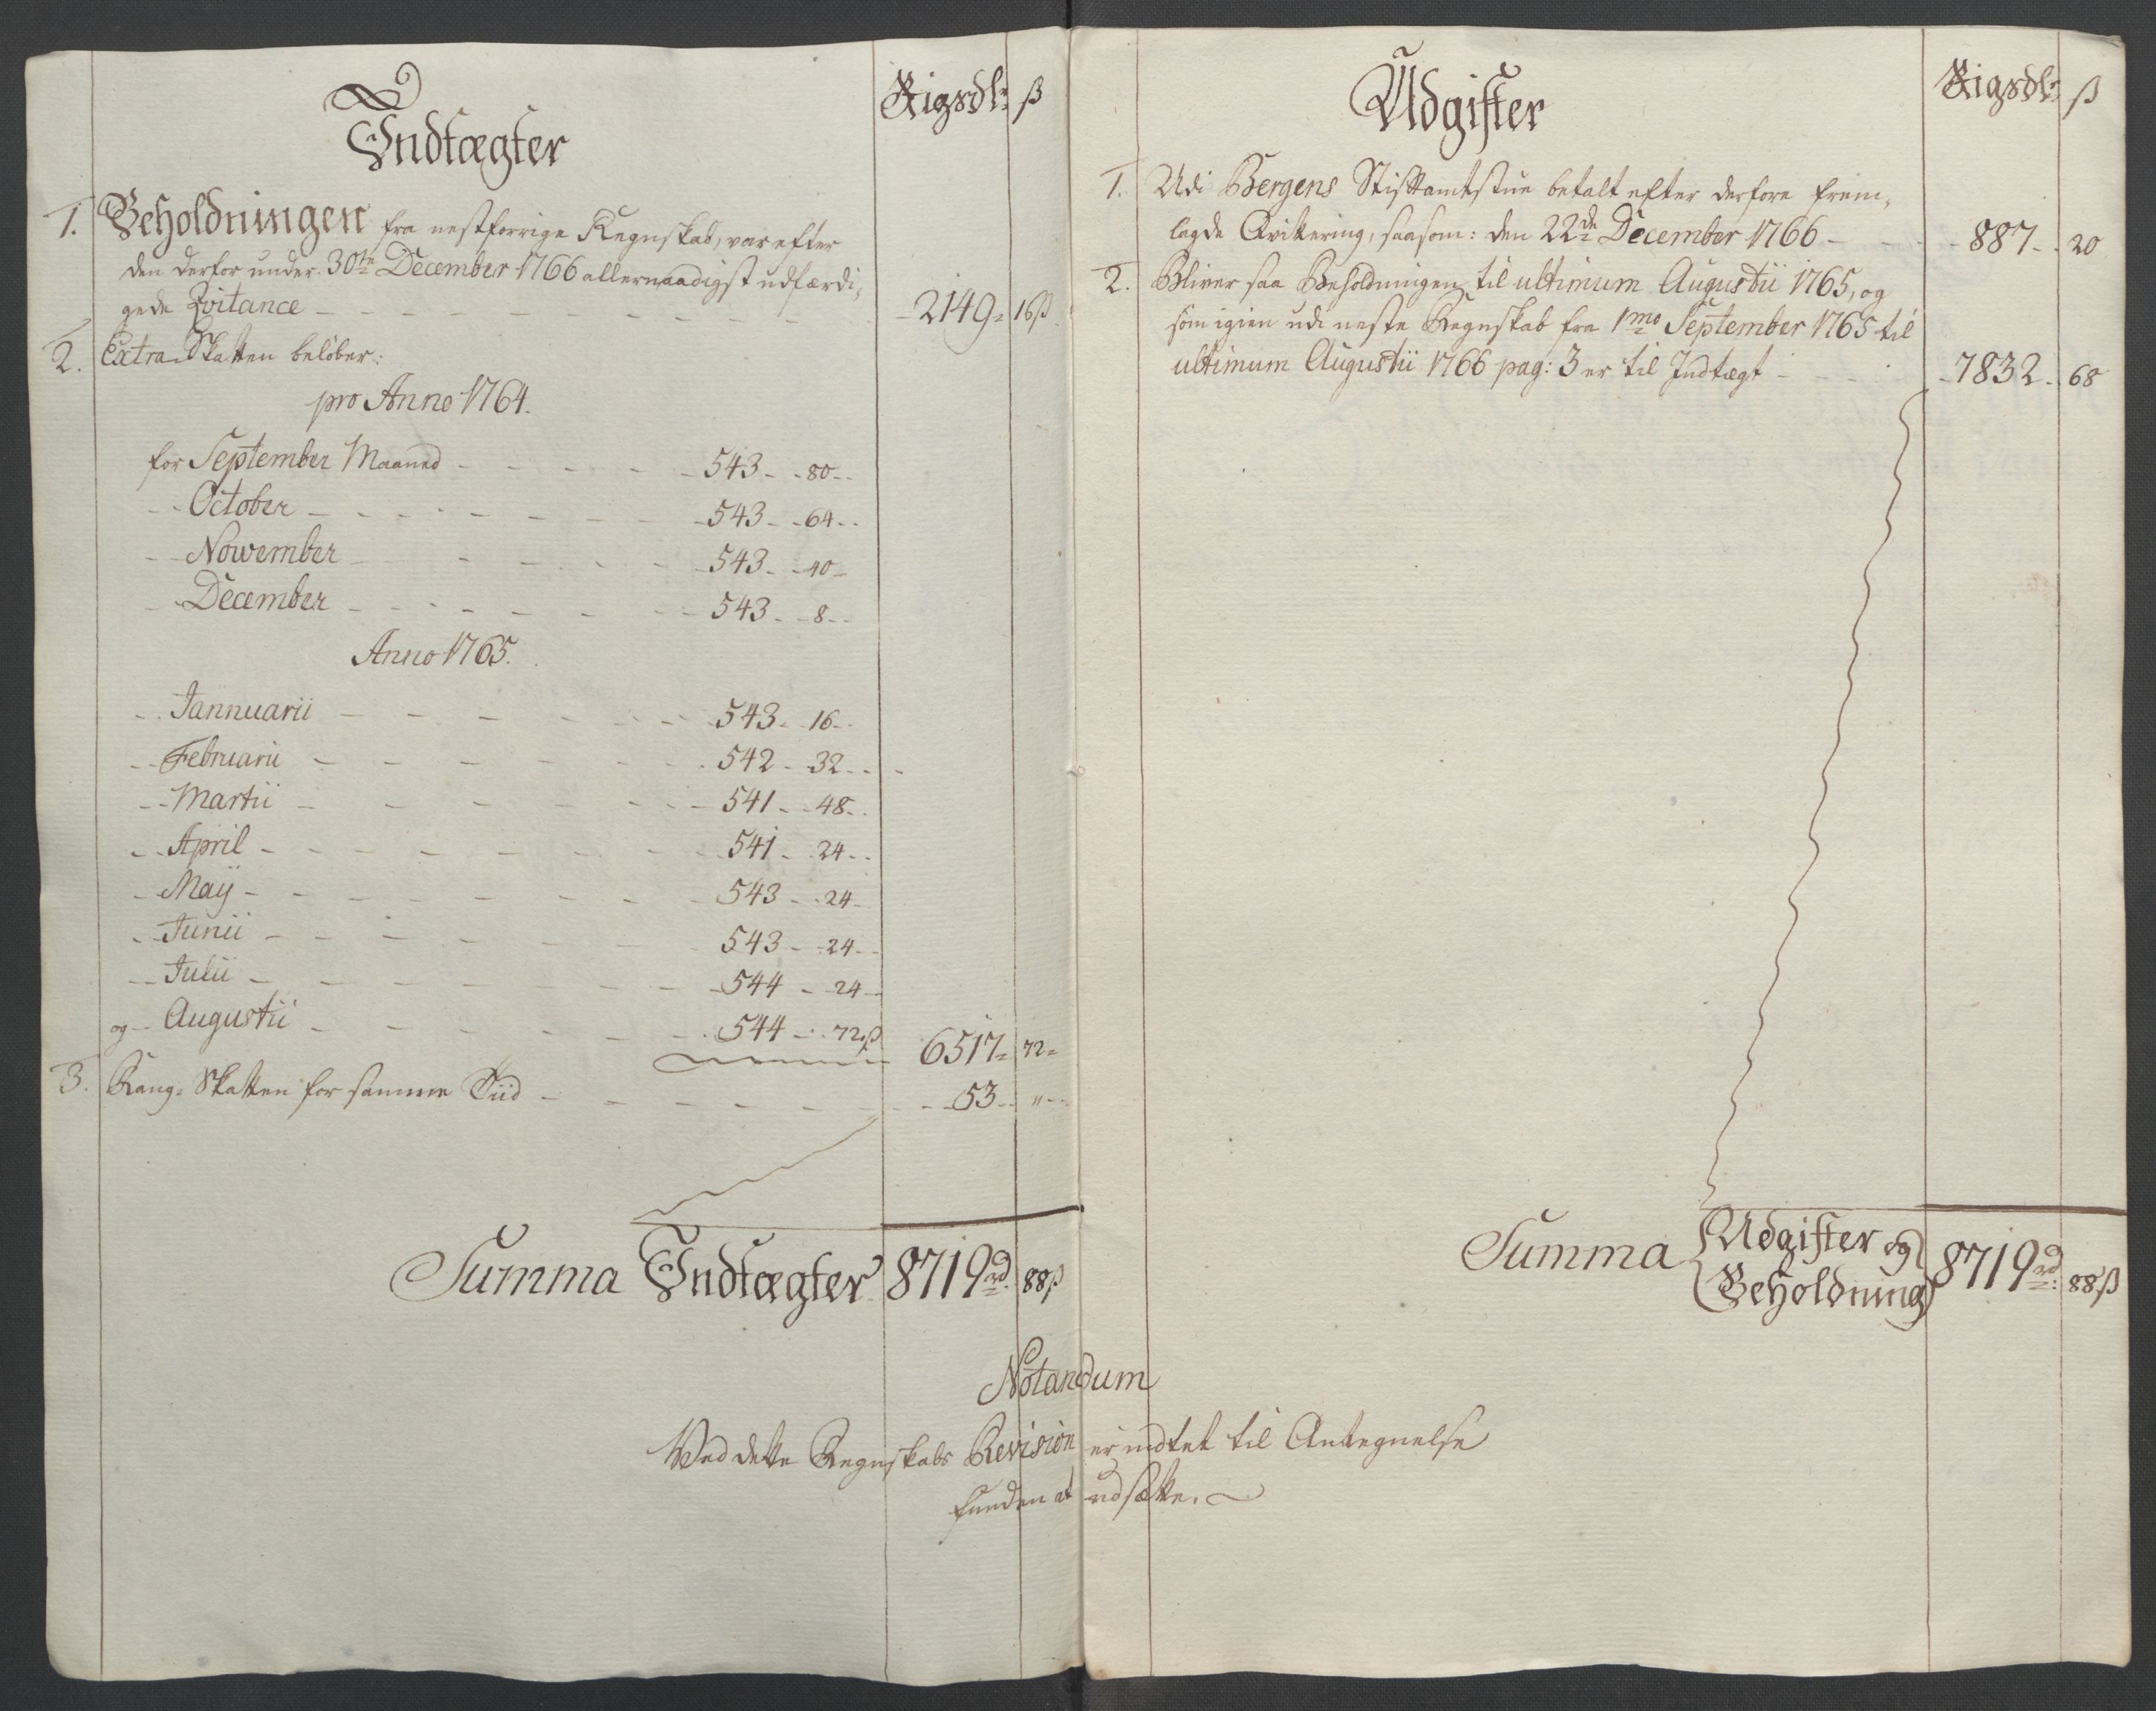 Indtægter
Rigsdlr ß
1. Beholdningen fra nestforrige Regnskab, var efter
den derfor under 30te December 1766 allernaadigst udfærdi,
gede Qvitance - 2149 - 16ß
2. Extra Skatten beløber:
pro Anno 1764.
for September Maaned - 543 - 80 -
- October - 543 - 64 -
- Nowember - 543 - 40 -
- December - 543 - 8 -
Anno 1765.
- Jannuarii - 543 - 16 -
- Februarii - 542 - 32 -
- Martii - 541 - 48 -
- April - 541 - 24 -
- Maÿ - 543 - 24 -
- Junii - 543 - 24 -
- Julii - 544 - 24 -
og - Augustii - 544 - 72ß 6517 = 72 =
3. Rang-Skatten for samme Tiid - 53 - " -
Summa Indtægter 8719rd 88ß
Udgifter
Rigsdlr ß
1. Udi Bergens Stiftamtstue betalt efter derfore frem,
lagde Qvittering, saasom: den 22de December 1766 - 887 - 20
2. Bliver saa Beholdningen til ultimum Augustii 1765, og
som igien udi neste Regnskab fra 1mo September 1765 til
ultimum Augustii 1766 pag: 3 er til Indtægt - 7832 - 68
Summa Udgifter og
Beholdning 8719rd: 88ß
Notandum
Ved dette Regnskabs Revision er indtet til Antegnelse
funden at udsætte.